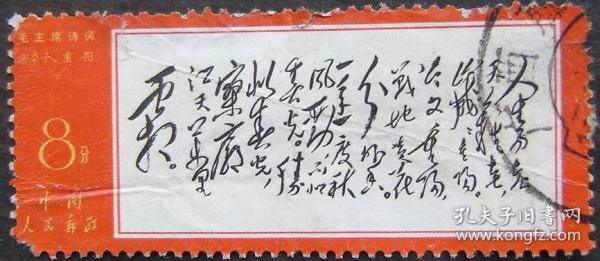 毛主席诗词
采桑子·重阳
8分
中国
人民邮政
人生易老
天难老，
岁岁重阳。
今又重阳，
战地黄花
分外香。
一年一度秋
风劲，不似
春光。胜
似春光，
寥廓
江天万里
霜。
孔夫子旧书网
www.kongfz.com